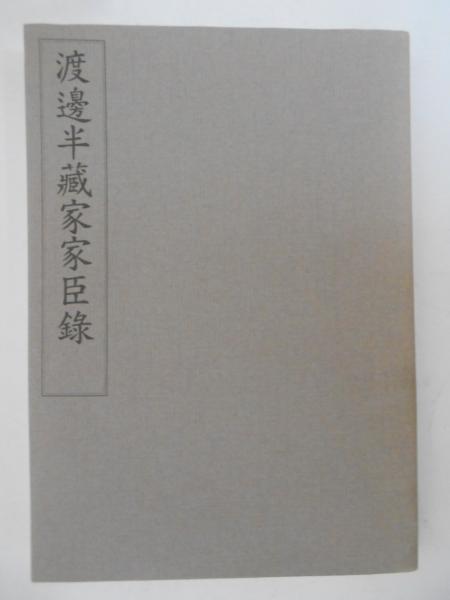 渡邊半藏家家臣錄